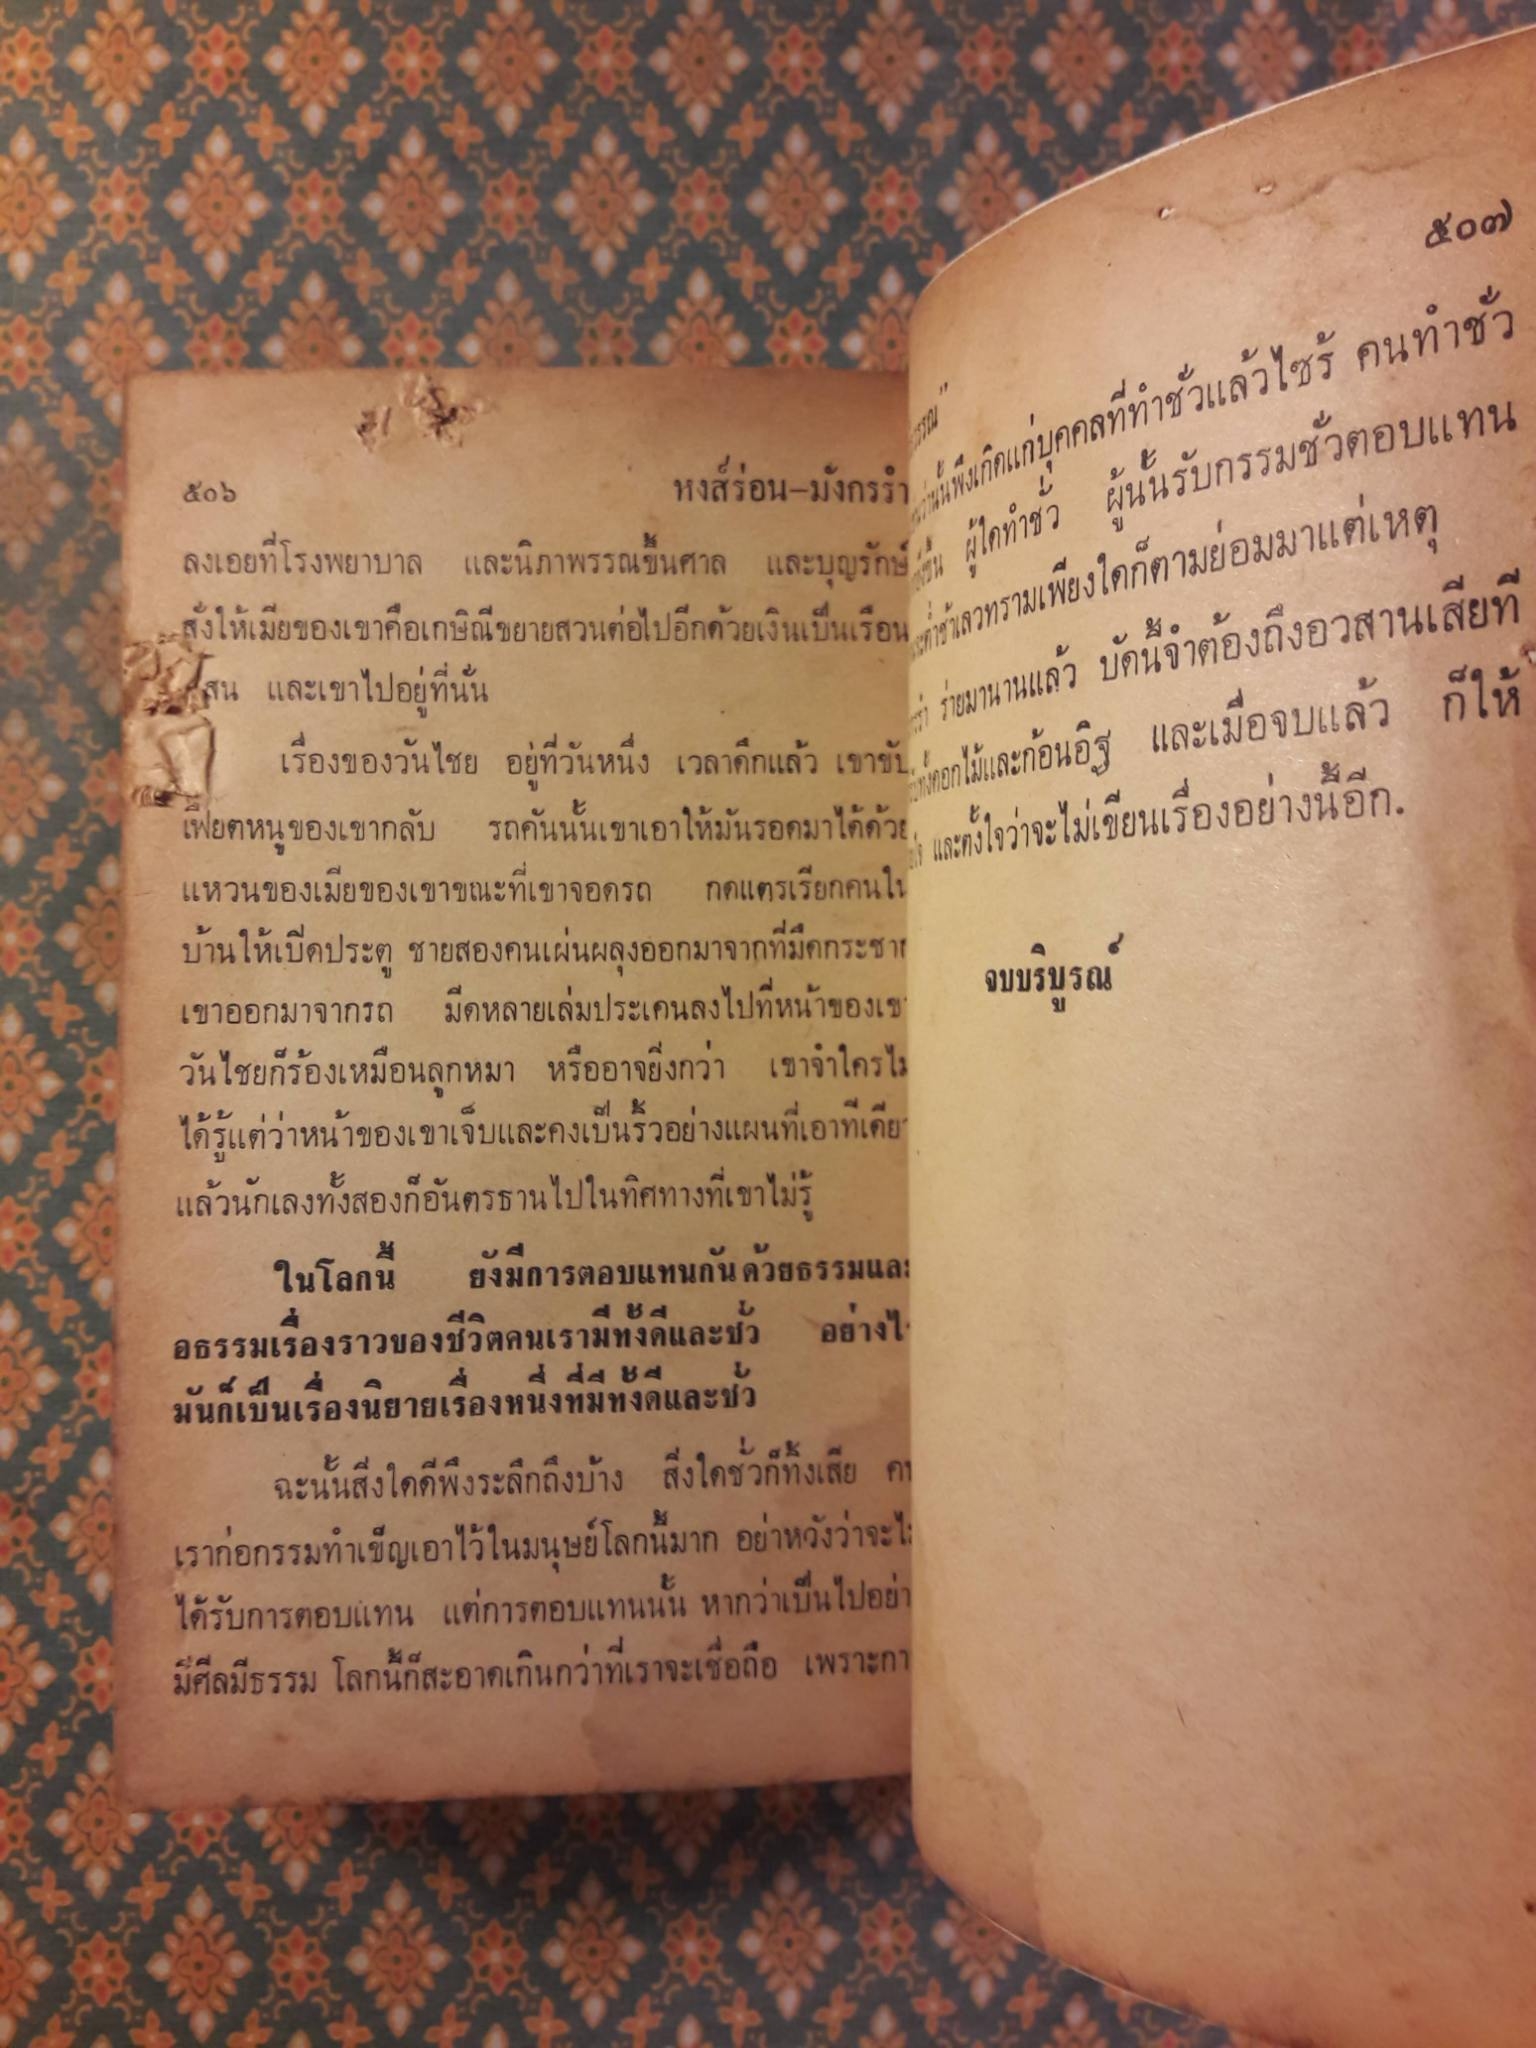 ๕๐๖ หงส์ร่อน–มังกรรำ
ลงเอยที่โรงพยาบาล และนิภาพรรณขึ้นศาล และบุญรักษ์
สั่งให้เมียของเขาคือเกษิณีขยายสวนต่อไปอีกด้วยเงินเป็นเรือน
แสน และเขาไปอยู่ที่นั่น
เรื่องของวันไชย อยู่ที่วันหนึ่ง เวลาดึกแล้ว เขาขับ
เฟียตหนูของเขากลับ รถคันนั้นเขาเอาให้มันรอดมาได้ด้วย
แหวนของเมียของเขาขณะที่เขาจอดรถ กดแตรเรียกคนใน
บ้านให้เปิดประตู ชายสองคนเผ่นผลุงออกมาจากที่มืดกระชาก
เขาออกมาจากรถ มีดหลายเล่มประเคนลงไปที่หน้าของเขา
วันไชยก็ร้องเหมือนลูกหมา หรืออาจยิ่งกว่า เขาจำใครไม่
ได้รู้แต่ว่าหน้าของเขาเจ็บและคงเป็นริ้วอย่างแผนที่เอาทีเดียว
แล้วนักเลงทั้งสองก็อันตรธานไปในทิศทางที่เขาไม่รู้
ในโลกนี้ ยังมีการตอบแทนกันด้วยธรรมและ
อธรรมเรื่องราวของชีวิตคนเรามีทั้งดีและชั่ว อย่างไร
มันก็เป็นเรื่องนิยายเรื่องหนึ่งที่มีทั้งดีและชั่ว
ฉะนั้นสิ่งใดดีพึงระลึกถึงบ้าง สิ่งใดชั่วก็ทิ้งเสีย คน
เราก่อกรรมทำเข็ญเอาไว้ในมนุษย์โลกนี้มาก อย่าหวังว่าจะไม่
ได้รับการตอบแทน แต่การตอบแทนนั้น หากว่าเป็นไปอย่าง
มีศีลมีธรรม โลกนี้ก็สะอาดเกินกว่าที่เราจะเชื่อถือ เพราะการ
๕๐๗
พึงเกิดแก่บุคคลที่ทำชั่วแล้วไซร้ คนทำชั่ว
ผู้ใดทำชั่ว ผู้นั้นรับกรรมชั่วตอบแทน
ต่ำช้าเลวทรามเพียงใดก็ตามย่อมมาแต่เหตุ
ร่ายมานานแล้ว บัดนี้จำต้องถึงอวสานเสียที
ทั้งดอกไม้และก้อนอิฐ และเมื่อจบแล้ว ก็ให้
และตั้งใจว่าจะไม่เขียนเรื่องอย่างนี้อีก.
จบบริบูรณ์